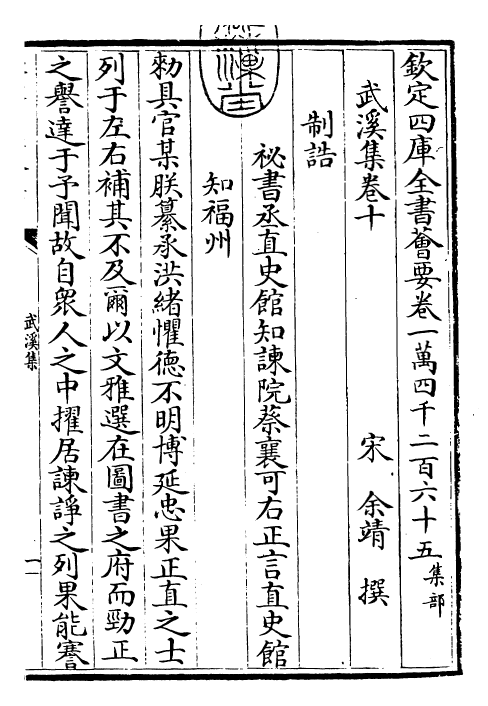 欽定四庫全書薈要卷一萬四千二百六十五 集部
武溪集卷十 宋 余靖 撰
制誥
秘書丞直史館知諫院蔡襄可右正言直史館
知福州
勑具官某朕纂承洪緒懼德不明博延忠果正直之士
列于左右補其不及爾以文雅選在圖書之府而勁正
之譽達于予聞故自衆人之中擢居諫諍之列果能謇
武溪集
一